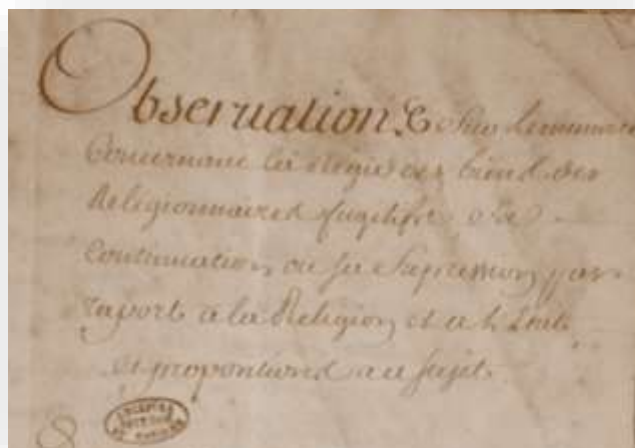 Observations Sur Lememoire
Concernant la Regie des biens des
Religionnaires fugitifs, Sa
Continuation, ou Sa Supression par
raport a la Religion, et a L'Etat
et propositions au sujet.